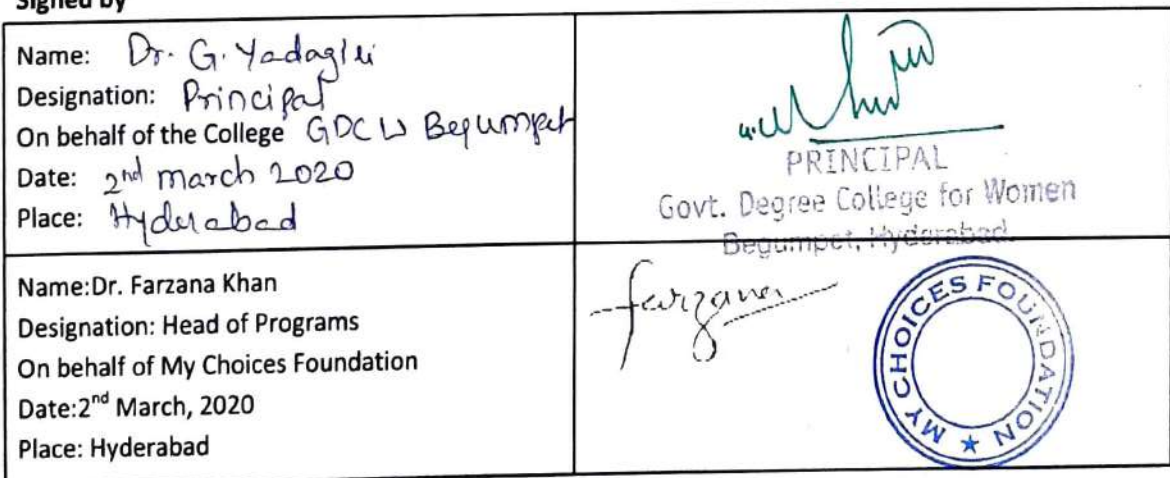 Signed by
Name: Dr. G. Yadagiri
Designation: Principal
On behalf of the College GDCW Begumpet
Date: 2nd march 2020
Place: Hyderabad
PRINCIPAL
Govt. Degree College for Women
Begumpet, Hyderabad.
Name:Dr. Farzana Khan
Designation: Head of Programs
On behalf of My Choices Foundation
Date:2nd March, 2020
Place: Hyderabad
farzana
MY CHOICES FOUNDATION